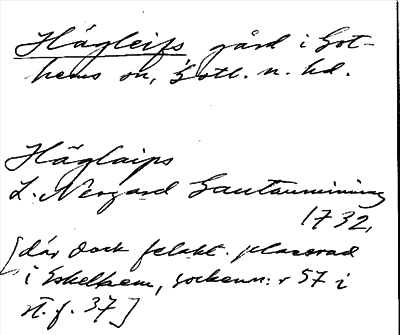 Hägleifs gård i Got-
hems sn, Gotl. n. hd.
Häglaips
L. Nergard Gautauminning
1732,
[där dock felakt. placerad
i Eskelhem, sockenn: r 57 i
st. f. 37]